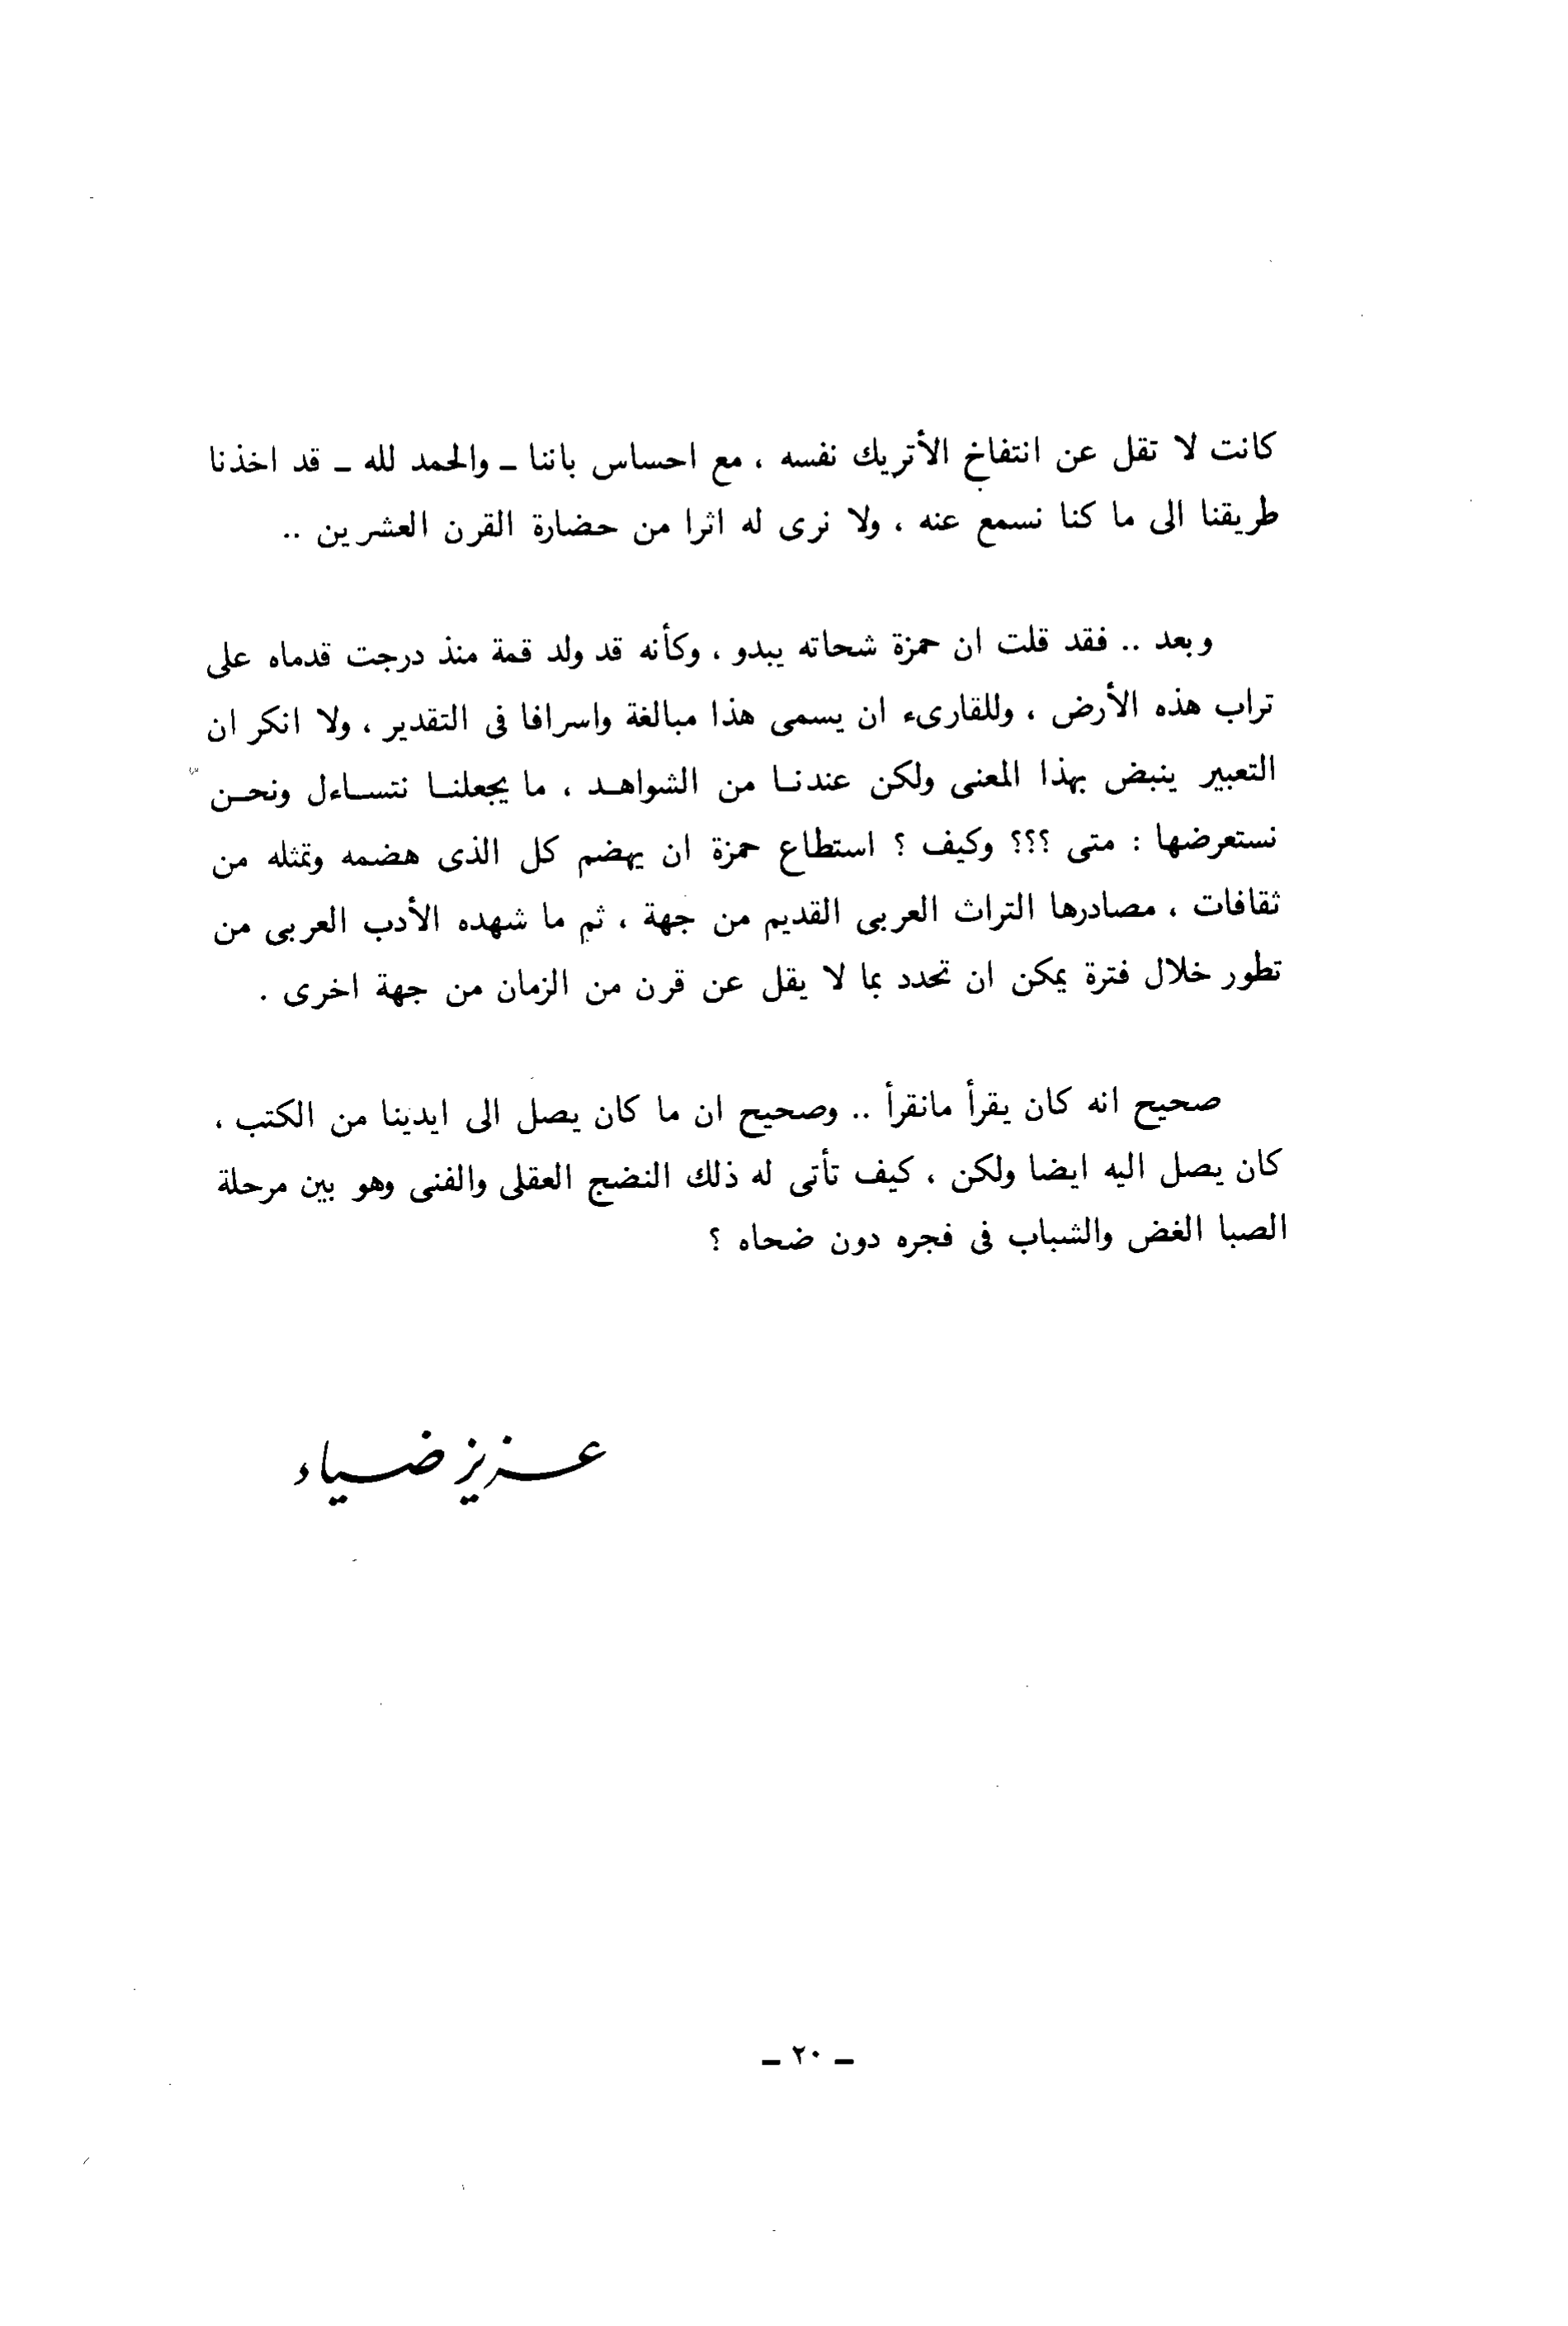 كانت لا تقل عن انتفاخ الأتريك نفسه ، مع احساس باننا ـ والحمد لله ـ قد اخذنا
طريقنا الى ما كنا نسمع عنه ، ولا نرى له اثرا من حضارة القرن العشرين ..
وبعد .. فقد قلت ان حمزة شحاته يبدو ، وكأنه قد ولد قمة منذ درجت قدماه على
تراب هذه الأرض ، وللقارىء ان يسمى هذا مبالغة واسرافا فى التقدير ، ولا انكر ان
التعبير ينبض بهذا المعنى ولكن عندنا من الشواهد ، ما يجعلنا نتساءل ونحن
نستعرضها : متى ؟؟؟ وكيف ؟ استطاع حمزة ان يهضم كل الذى هضمه وتمثله من
ثقافات ، مصادرها التراث العربى القديم من جهة ، ثم ما شهده الأدب العربى من
تطور خلال فترة يمكن ان تحدد بما لا يقل عن قرن من الزمان من جهة اخرى .
صحيح انه كان يقرأ مانقرأ .. وصحيح ان ما كان يصل الى ايدينا من الكتب ،
كان يصل اليه ايضا ولكن ، كيف تأتى له ذلك النضج العقلى والفنى وهو بين مرحلة
الصبا الغض والشباب فى فجره دون ضحاه ؟
عزيز ضياء
ـ ٢٠ ـ